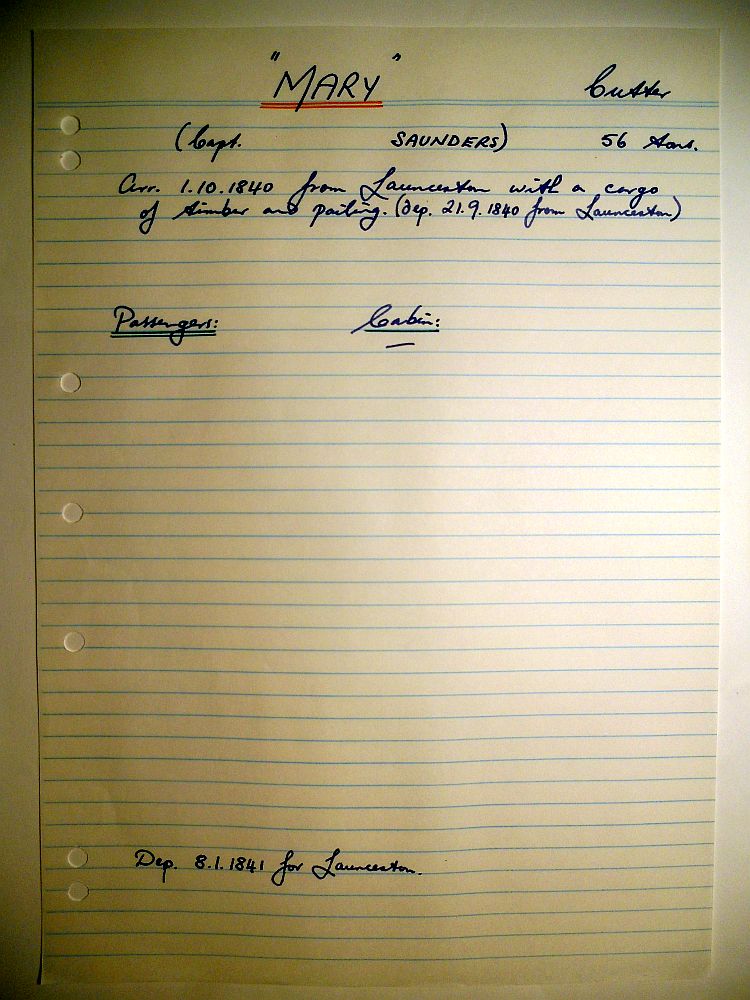 "MARY" Cutter
(Capt. SAUNDERS) 56 tons.
Arr. 1.10.1840 from Launceston with a cargo
of timber and pailing. (Dep. 21.9.1840 from Launceston)
Passengers: Cabin:
—
Dep. 8.1.1841 for Launceston.